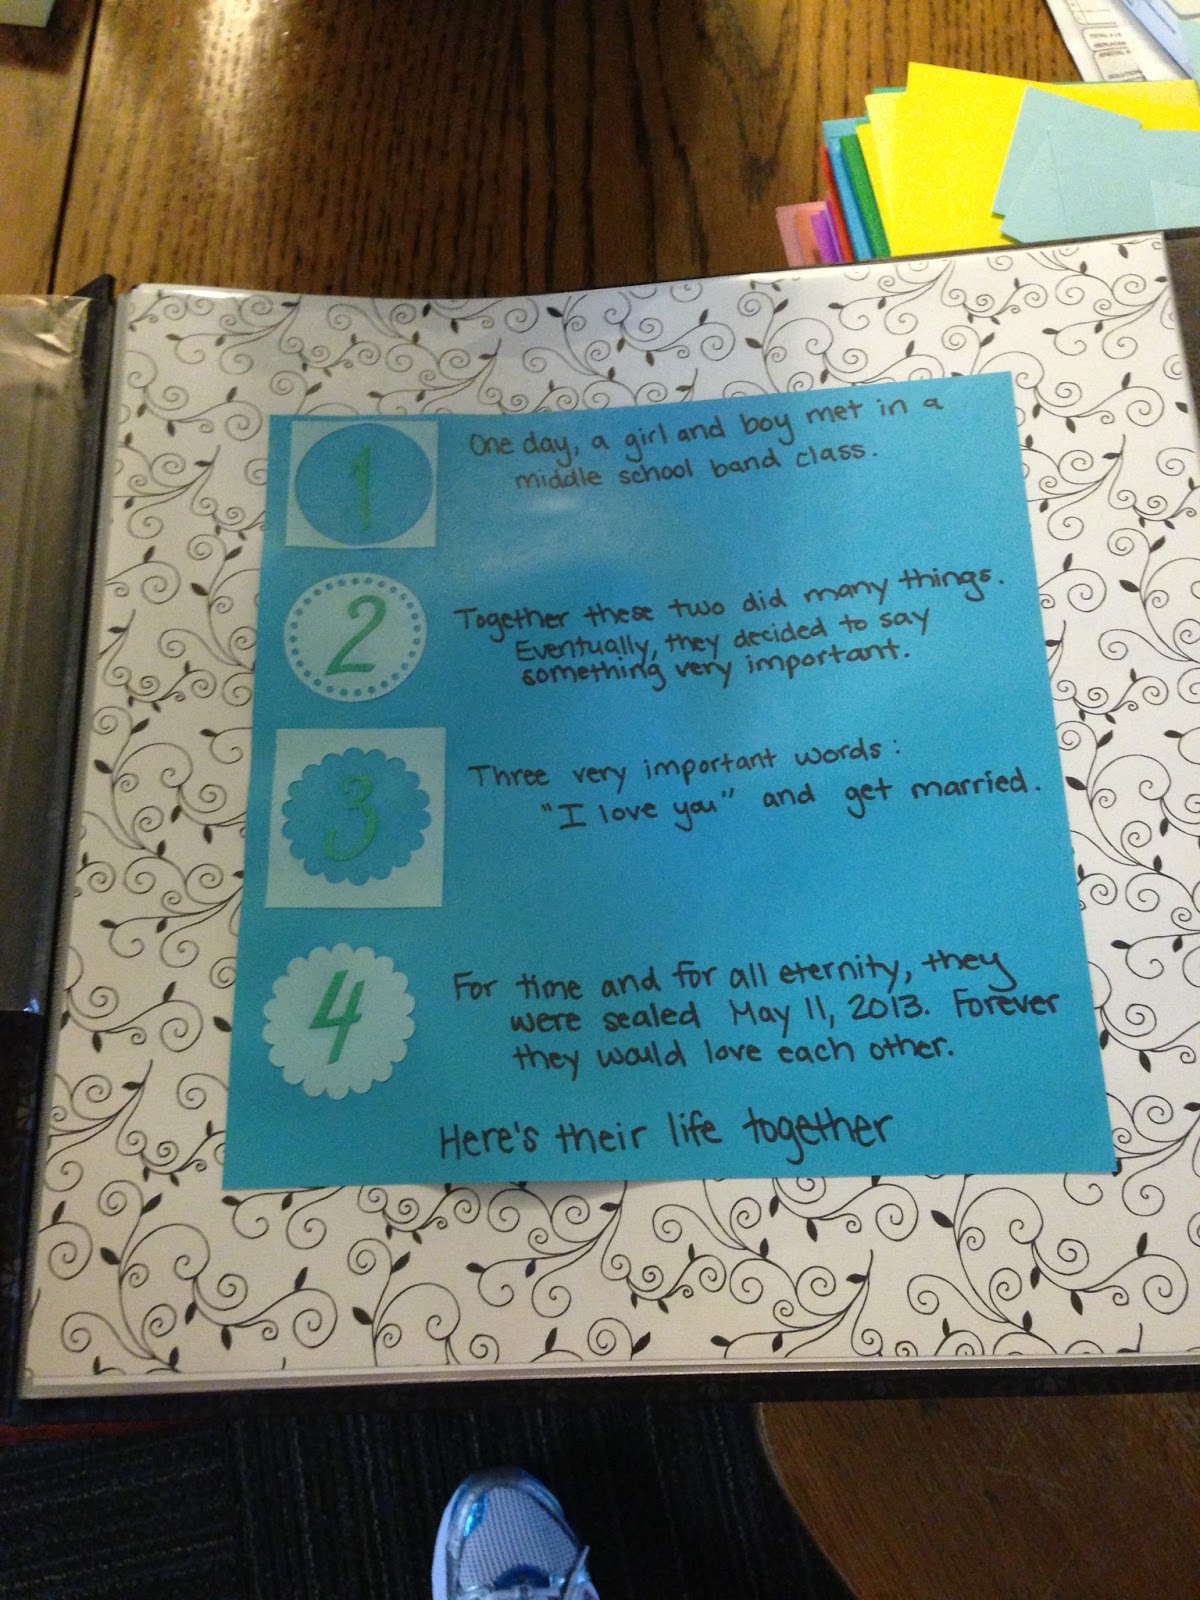 TOTAL # LB
REPLACER
SPECIAL #
SOLUTION
1
One day, a girl and boy met in a
middle school band class.
2
Together these two did many things.
Eventually, they decided to say
something very important.
3
Three very important words:
"I love you" and get married.
4
For time and for all eternity, they
were sealed May 11, 2013. Forever
they would love each other.
Here's their life together